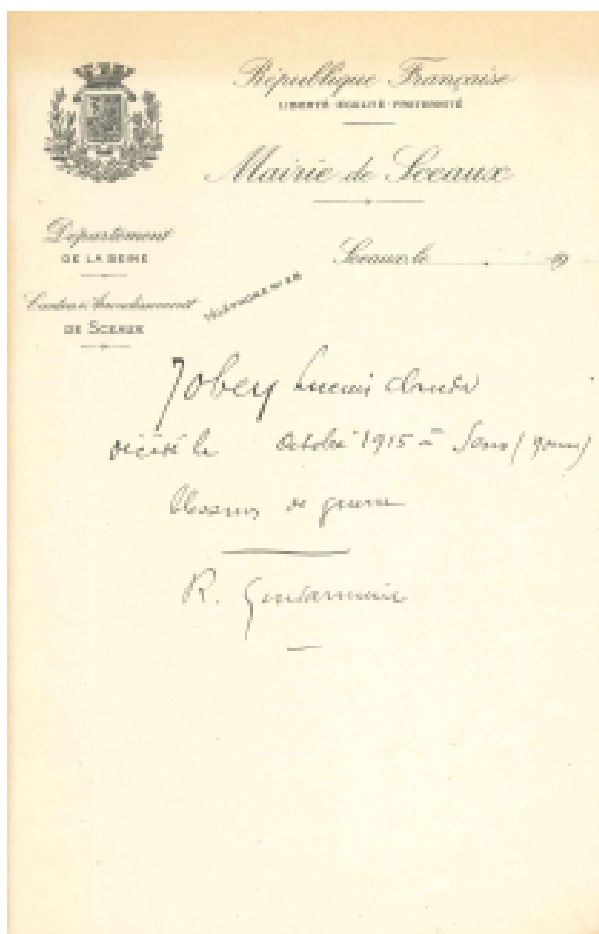 République Française
LIBERTÉ-ÉGALITÉ-FRATERNITÉ
Mairie de Sceaux
Département
DE LA SEINE
Sceaux, le 19
Canton & Arrondissement
DE SCEAUX
Jobey Lucien
décédé le Octobre 1915 à Sens (Yonne)
blessures de guerre
R. Gendarmerie